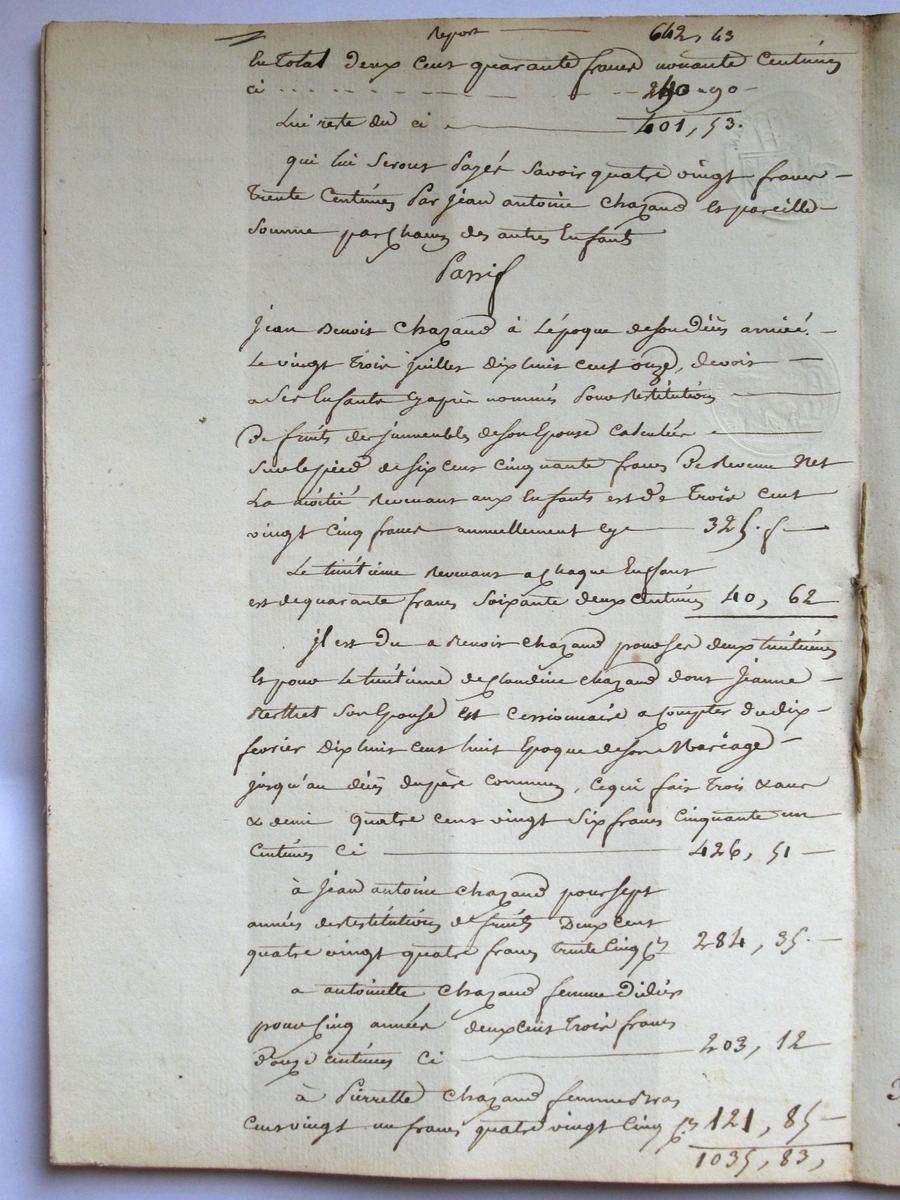 report 642, 43
En total deux cent quarante francs nonante centimes
ci 240 - 90 -
Lui reste du ci 401, 53.
qui lui seront payés savoir quatre vingt francs
trente centimes par jean antoine Chazaud et pareille
somme par chacun des autres enfants
Passif
Jean Benoit Chazaud à l'époque de son décès arrivé
Le vingt trois juillet dix huit cent onze, devoit
a ses Enfants cy après nommés pour restitutions
De fruits des jmmeubles de son Epouse calculées
sur le pied de six cent cinquante francs De Revenu Net
La moitié revenant aux Enfants est de Trois cent
vingt cinq francs annuellement cy 325. f
Le huitieme revenant a chaque Enfant
est de quarante francs soixante deux centimes 40, 62
jl est du a Benoit chazaud pour ses deux huitiemes
Et pour le huitieme de Claudine chazaud dont Jeanne
Berthet son Epouse est cessionnaire a compter du dix
fevrier dix huit cent huit Epoque de son Mariage
jusqu'au décès du père commun, ce qui fait trois ans
& demi quatre cent vingt six francs cinquante un
centimes ci 426, 51
à Jean antoine Chazaud pour sept
années de restitutions de fruits Deux cent
quatre vingt quatre francs trente cinq c 284, 35.
a antoinette Chazaud femme Didier
pour cinq années deux cens trois francs
douze centimes ci 203, 12
à Pierrette Chazaud femme Bras
cent vingt un francs quatre vingt cinq c 121, 85
1035, 83,